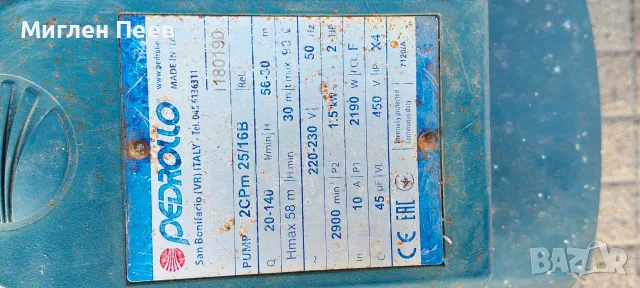 Миглен Пеев
PEDROLLO
www.pedrollo
San Bonifacio (VR) ITALY Tel. 045 6136311
MADE IN
180190
PUMP 2CPm 25/16B Rel.
Q 20-140 l/min H 56-30 m
Hmax 58 m Hmin 30 m tmax 90 C
~ 220-230 V 50 Hz
2900 min P2 1.5 kW 2 HP
In 10 A P1 2190 W ICL F
C 45 µF VL 450 V IP X4
CE EAC
Thermally protected
Continuous duty
7120IA
BAZAR
bg